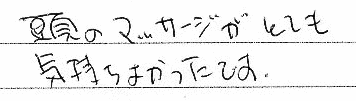 頭のマッサージがとても
気持ちよかったです.